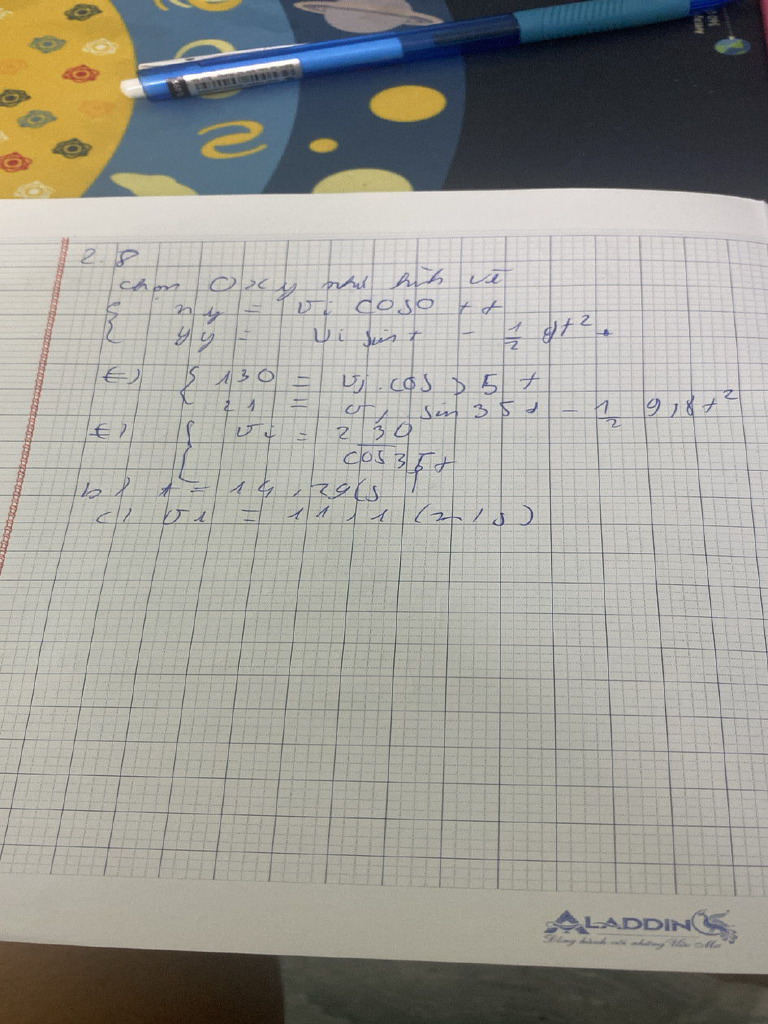 2.8
chọn Oxy như hình vẽ
{ xy = vi cosθ t
{ yy = vi sin t - 1/2 gt².
{ 130 = vi.cos 35 t
21 = vi sin 35t - 1/2 9,8t²
{ vi = 130 / cos35t
b) t =
c) vi = 11,1 (m/s)
ALADDIN
Đồng hành với những Ước Mơ